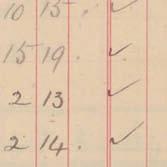 10 15. ✓
15 19. ✓
2 13 ✓
2 14. ✓